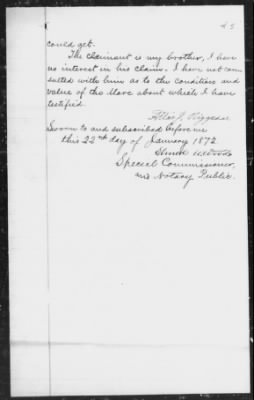 25
could get.
The claimant is my brother, I have
no interest in his claim. I have not con
sulted with him as to the condition and
value of the Mare about which I have
testified.
Sworn to and subscribed before me
this 22nd day of January 1872
Special Commissioner
and Notary Public.